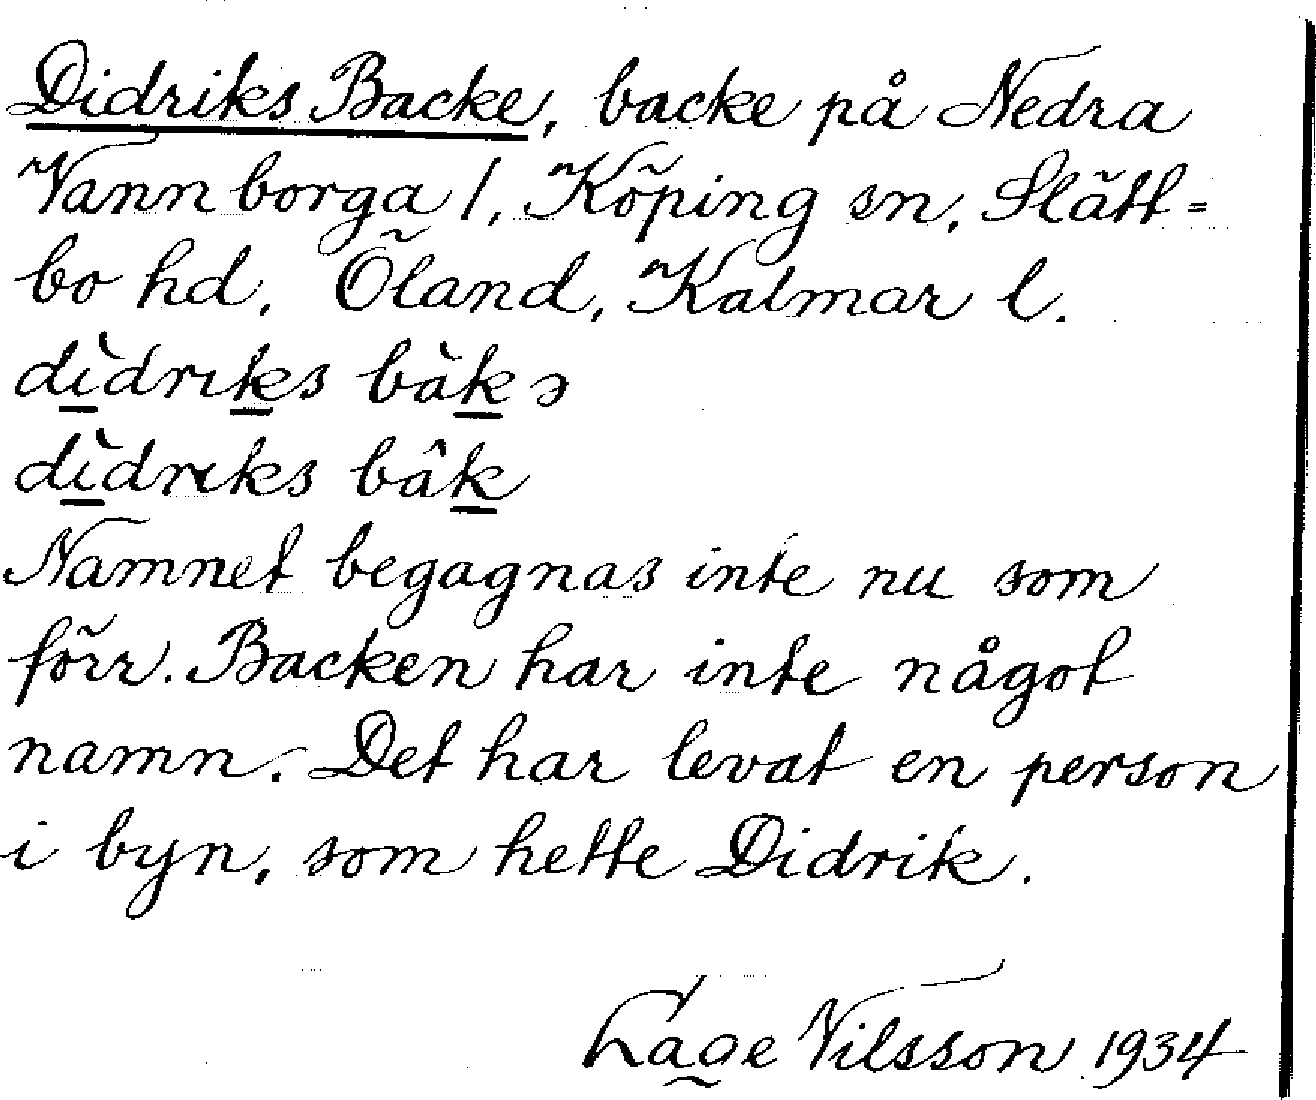 Didriks Backe, backe på Nedra
Vannborga 1, Köping sn, Slätt=
bo hd, Öland, Kalmar l.
dìdrıks bàkə
dìdrıks bâk
Namnet begagnas inte nu som
förr. Backen har inte något
namn. Det har levat en person
i byn, som hette Didrik.
Låge Nilsson 1934